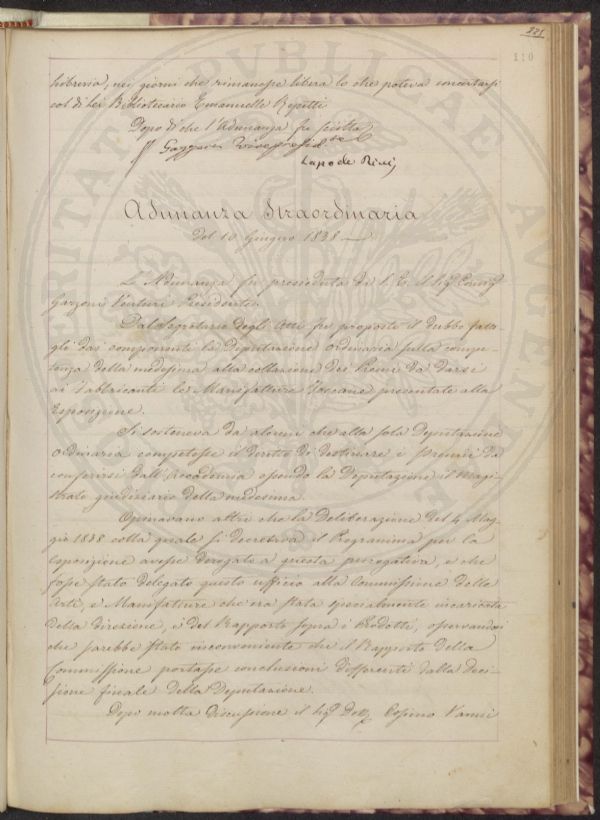 221
110
breria, nei giorni che rimanesse libera lo che poteva concertarsi
col di Lei Bibliotecario Emanuelle Repetti
Dopo di che l'Adunanza fu sciolta
Lapo de Ricci
Adunanza Straordinaria
del 10 Giugno 1838
L'Adunanza fu preseduta da S. E. il Sig.
Garzoni Venturi Presidente.
Dal Segretario degli Atti fu proposto il dubbo fatto-
gli dai componenti la Deputazione ordinaria sulla compe-
tenza della medesima alla collazione dei Premi da darsi
ai Fabbricanti le Manifatture Toscane presentate alla
Esposizione.
Si sosteneva da alcuni che alla sola Deputazione
Ordinaria competesse il dritto di destinare i premi da
conferirsi dall'Accademia essendo la Deputazione il Magi-
strato giudiziario della medesima.
Opinavano altri che la Deliberazione del 4 Mag-
gio 1838 colla quale si decretava il Programma per la
Esposizione avesse derogato a questa prerogativa, e che
fosse stato delegato questo uffizio alla Commissione delle
Arti, e Manifatture che era stata specialmente incaricata
della direzione, e del Rapporto sopra i Prodotti, osservando
che sarebbe stato inconveniente che il Rapporto della
Commissione portasse conclusioni differenti dalla deci-
sione fiscale della Deputazione.
Dopo molta discussione il Sig. Dott. Cosimo Vanni